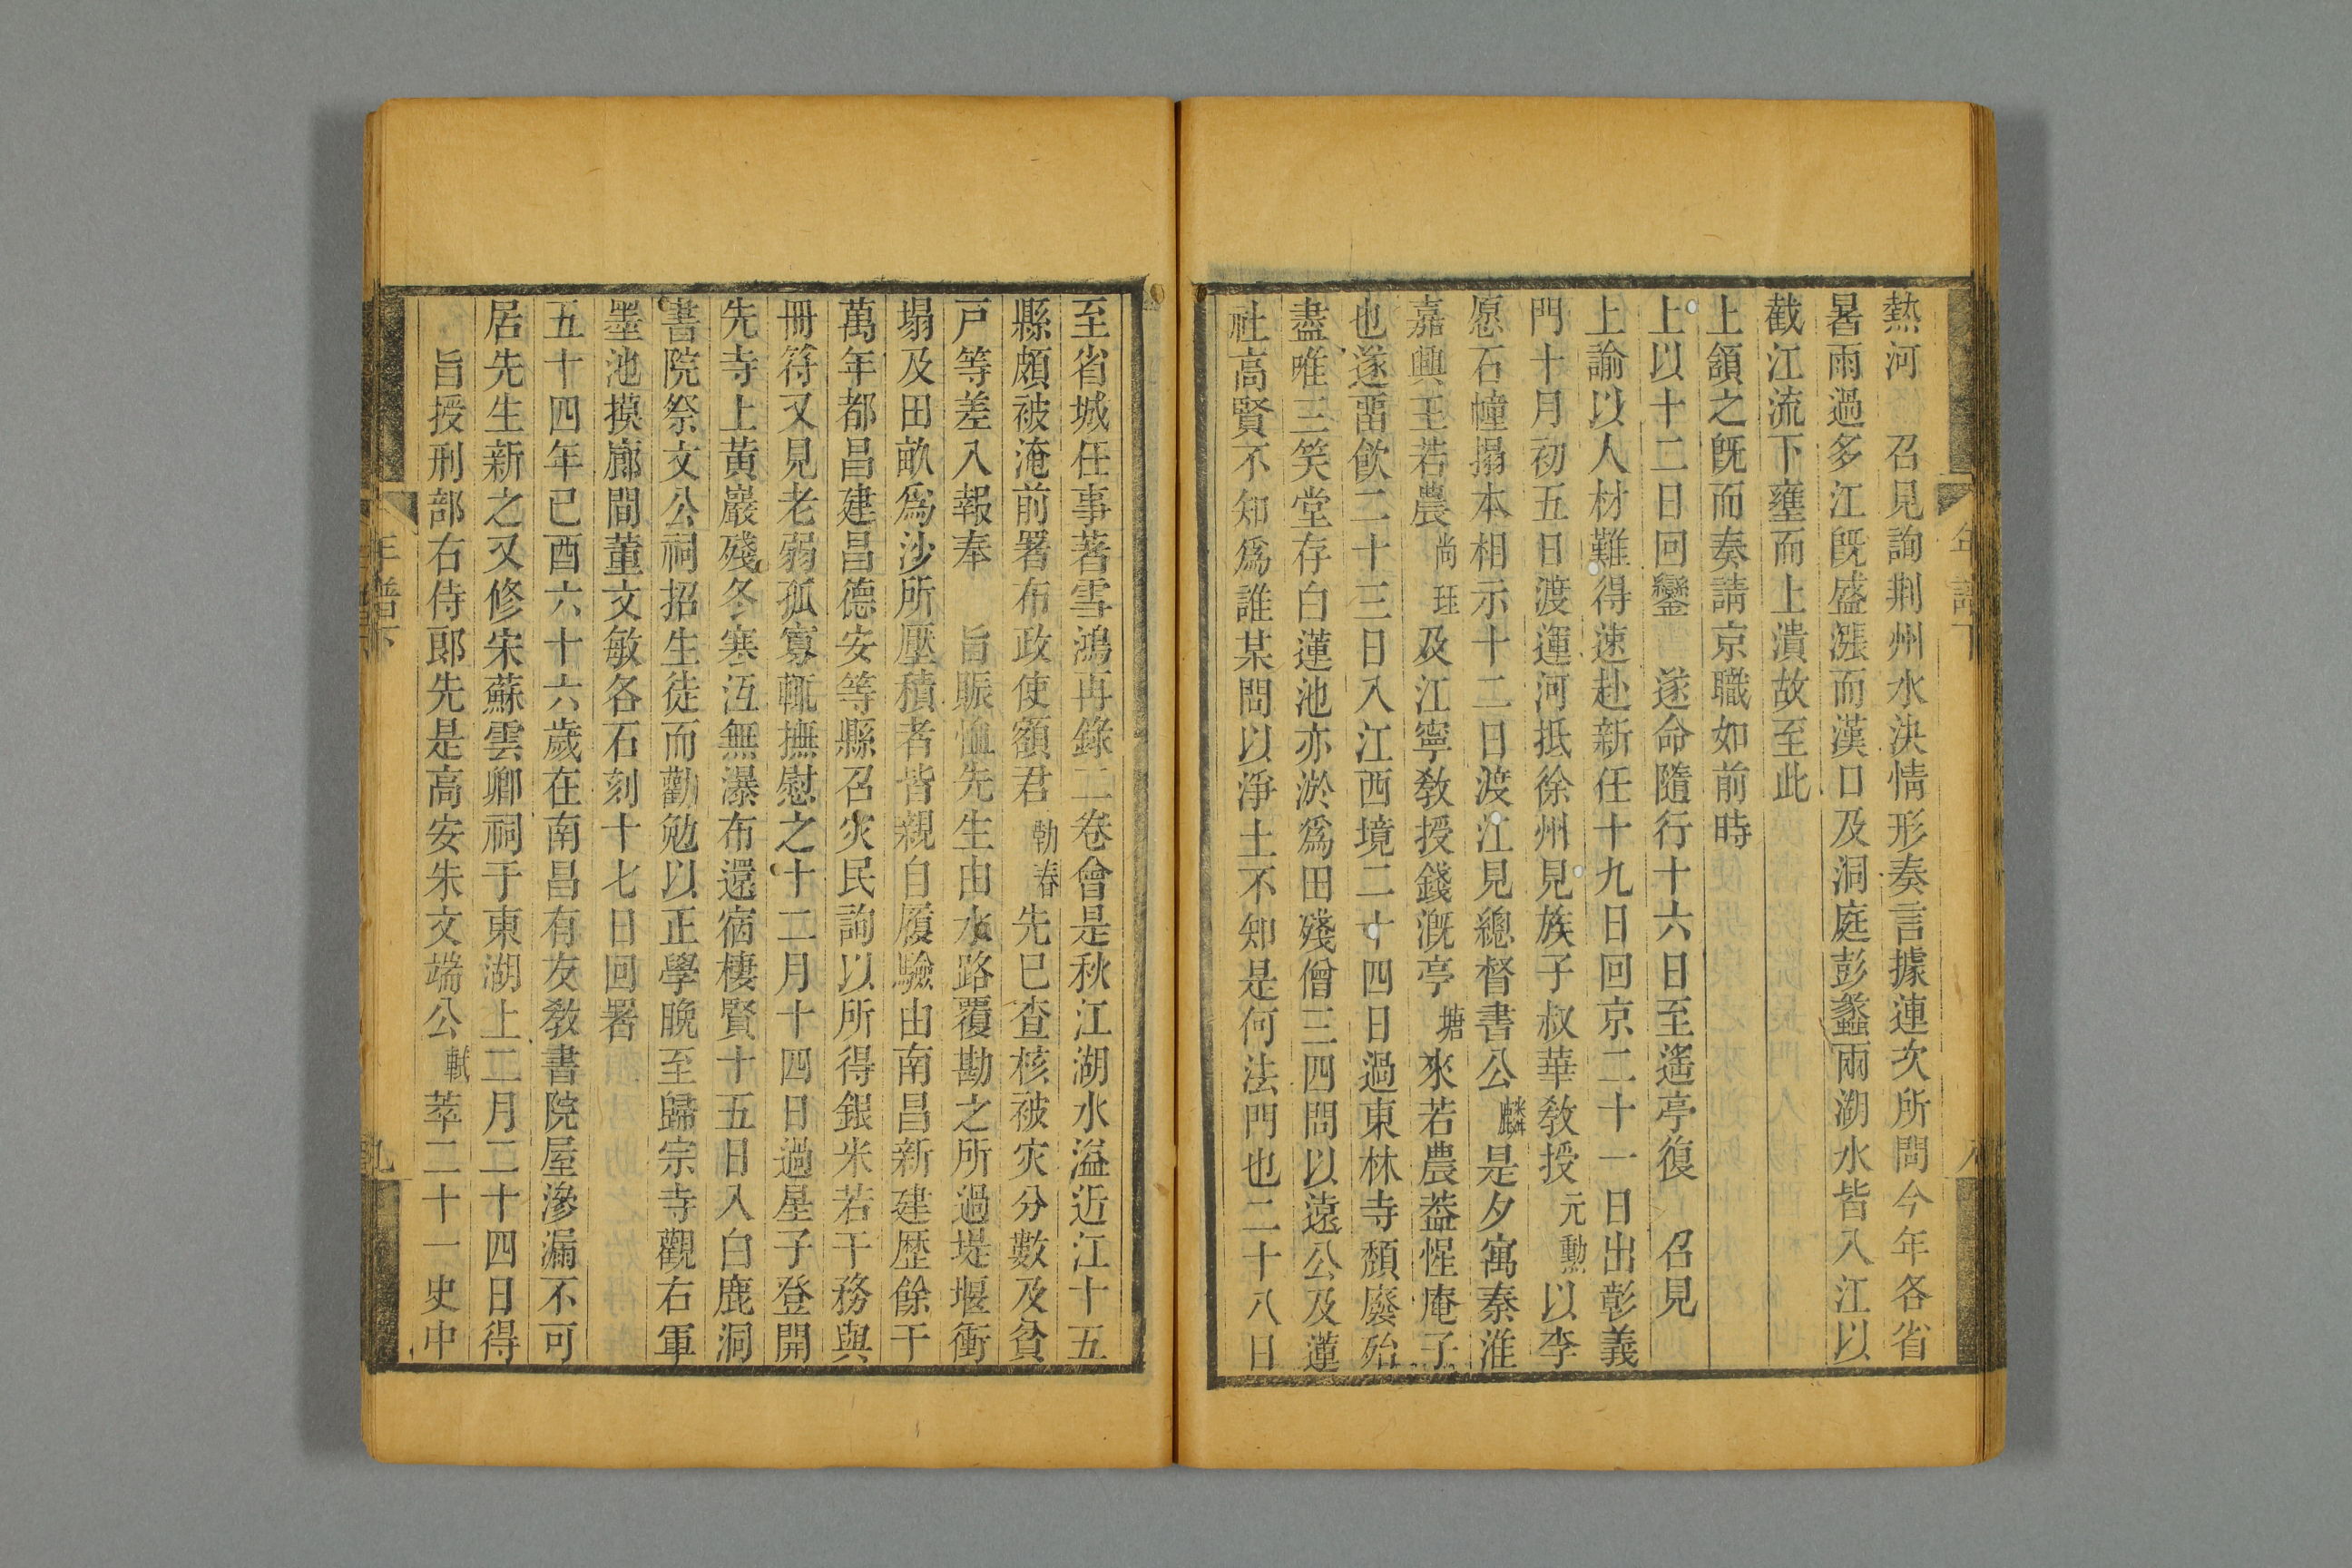 熱河　召見詢荆州水決情形奏言據連次所問今年各省
暑雨過多江既盛漲而漢口及洞庭彭蠡兩湖水皆入江以
截江流下壅而上潰故至此
上領之既而奏請京職如前時
上以十二日回鑾　遂命隨行十六日至遙亭復　召見
上諭以人材難得速赴新任十九日回京二十一日出彰義
門十月初五日渡運河抵徐州見族子叔華教授元勲以李
愿石幢搨本相示十二日渡江見總督書公麟是夕寓秦淮
嘉興王若農尚珏及江寧教授錢漑亭塘來若農葢惺庵子
也遂畱飲二十三日入江西境二十四日過東林寺頽廢殆
盡唯三笑堂存白蓮池亦淤爲田殘僧三四問以遠公及蓮
社高賢不知爲誰某問以淨土不知是何法門也二十八日
年譜下
至省城任事著雪鴻再錄二卷會是秋江湖水溢近江十五
縣頗被淹前署布政使額君勒春先已查核被灾分數及貧
戸等差入報奉　旨賑恤先生由水路覆勘之所過堤堰衝
塌及田畝爲沙所壓積者皆親自履驗由南昌新建歴餘干
萬年都昌建昌德安等縣召灾民詢以所得銀米若干務與
冊符又見老弱孤寡輒撫慰之十二月十四日過星子登開
先寺上黃巖殘冬寒沍無瀑布還宿棲賢十五日入白鹿洞
書院祭文公祠招生徒而勸勉以正學晚至歸宗寺觀右軍
墨池摸廊間董文敏各石刻十七日回署
五十四年己酉六十六歲在南昌有友教書院屋滲漏不可
居先生新之又修宋蘇雲卿祠于東湖上二月二十四日得
旨授刑部右侍郎先是高安朱文端公軾萃二十一史中
年譜下
九